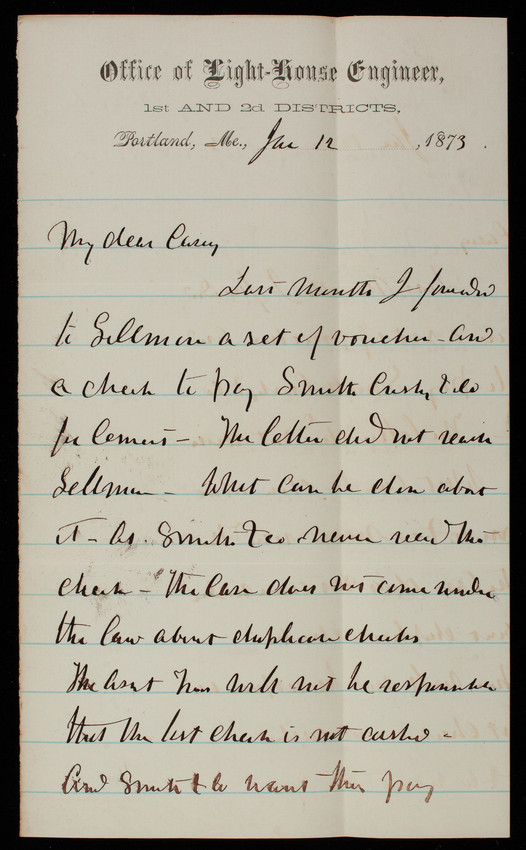 Office of Light-House Engineer,
1st AND 2d DISTRICTS,
Portland, Me., Jan 12, 1873.
My dear Casey
Last month I forwarded
to Gillmore a set of vouchers and
a check to pay Smith & Co
for Cement - The letter did not reach
Gillmore - What can be done about
it - As Smith & Co never recd the
check - The case does not come under
the law about duplicate checks
The Asst Treas will not be responsible
that the lost check is not cashed -
And Smith & Co want their pay